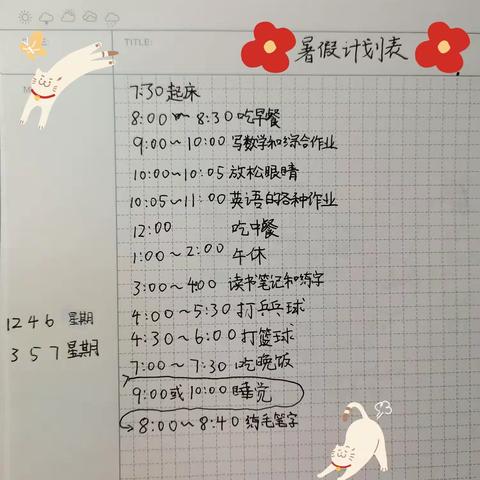 TITLE:
暑假计划表
7:30 起床
8:00 ~ 8:30 吃早餐
9:00 ~ 10:00 写数学和综合作业
10:00 ~ 10:05 放松眼睛
10:05 ~ 11:00 英语的各种作业
12:00 吃中餐
1:00 ~ 2:00 午休
3:00 ~ 4:00 读书笔记和练字
1 2 4 6 星期 4:00 ~ 5:30 打乒乓球
3 5 7 星期 4:30 ~ 6:00 打篮球
7:00 ~ 7:30 吃晚饭
9:00或10:00 睡觉
8:00 ~ 8:40 练毛笔字